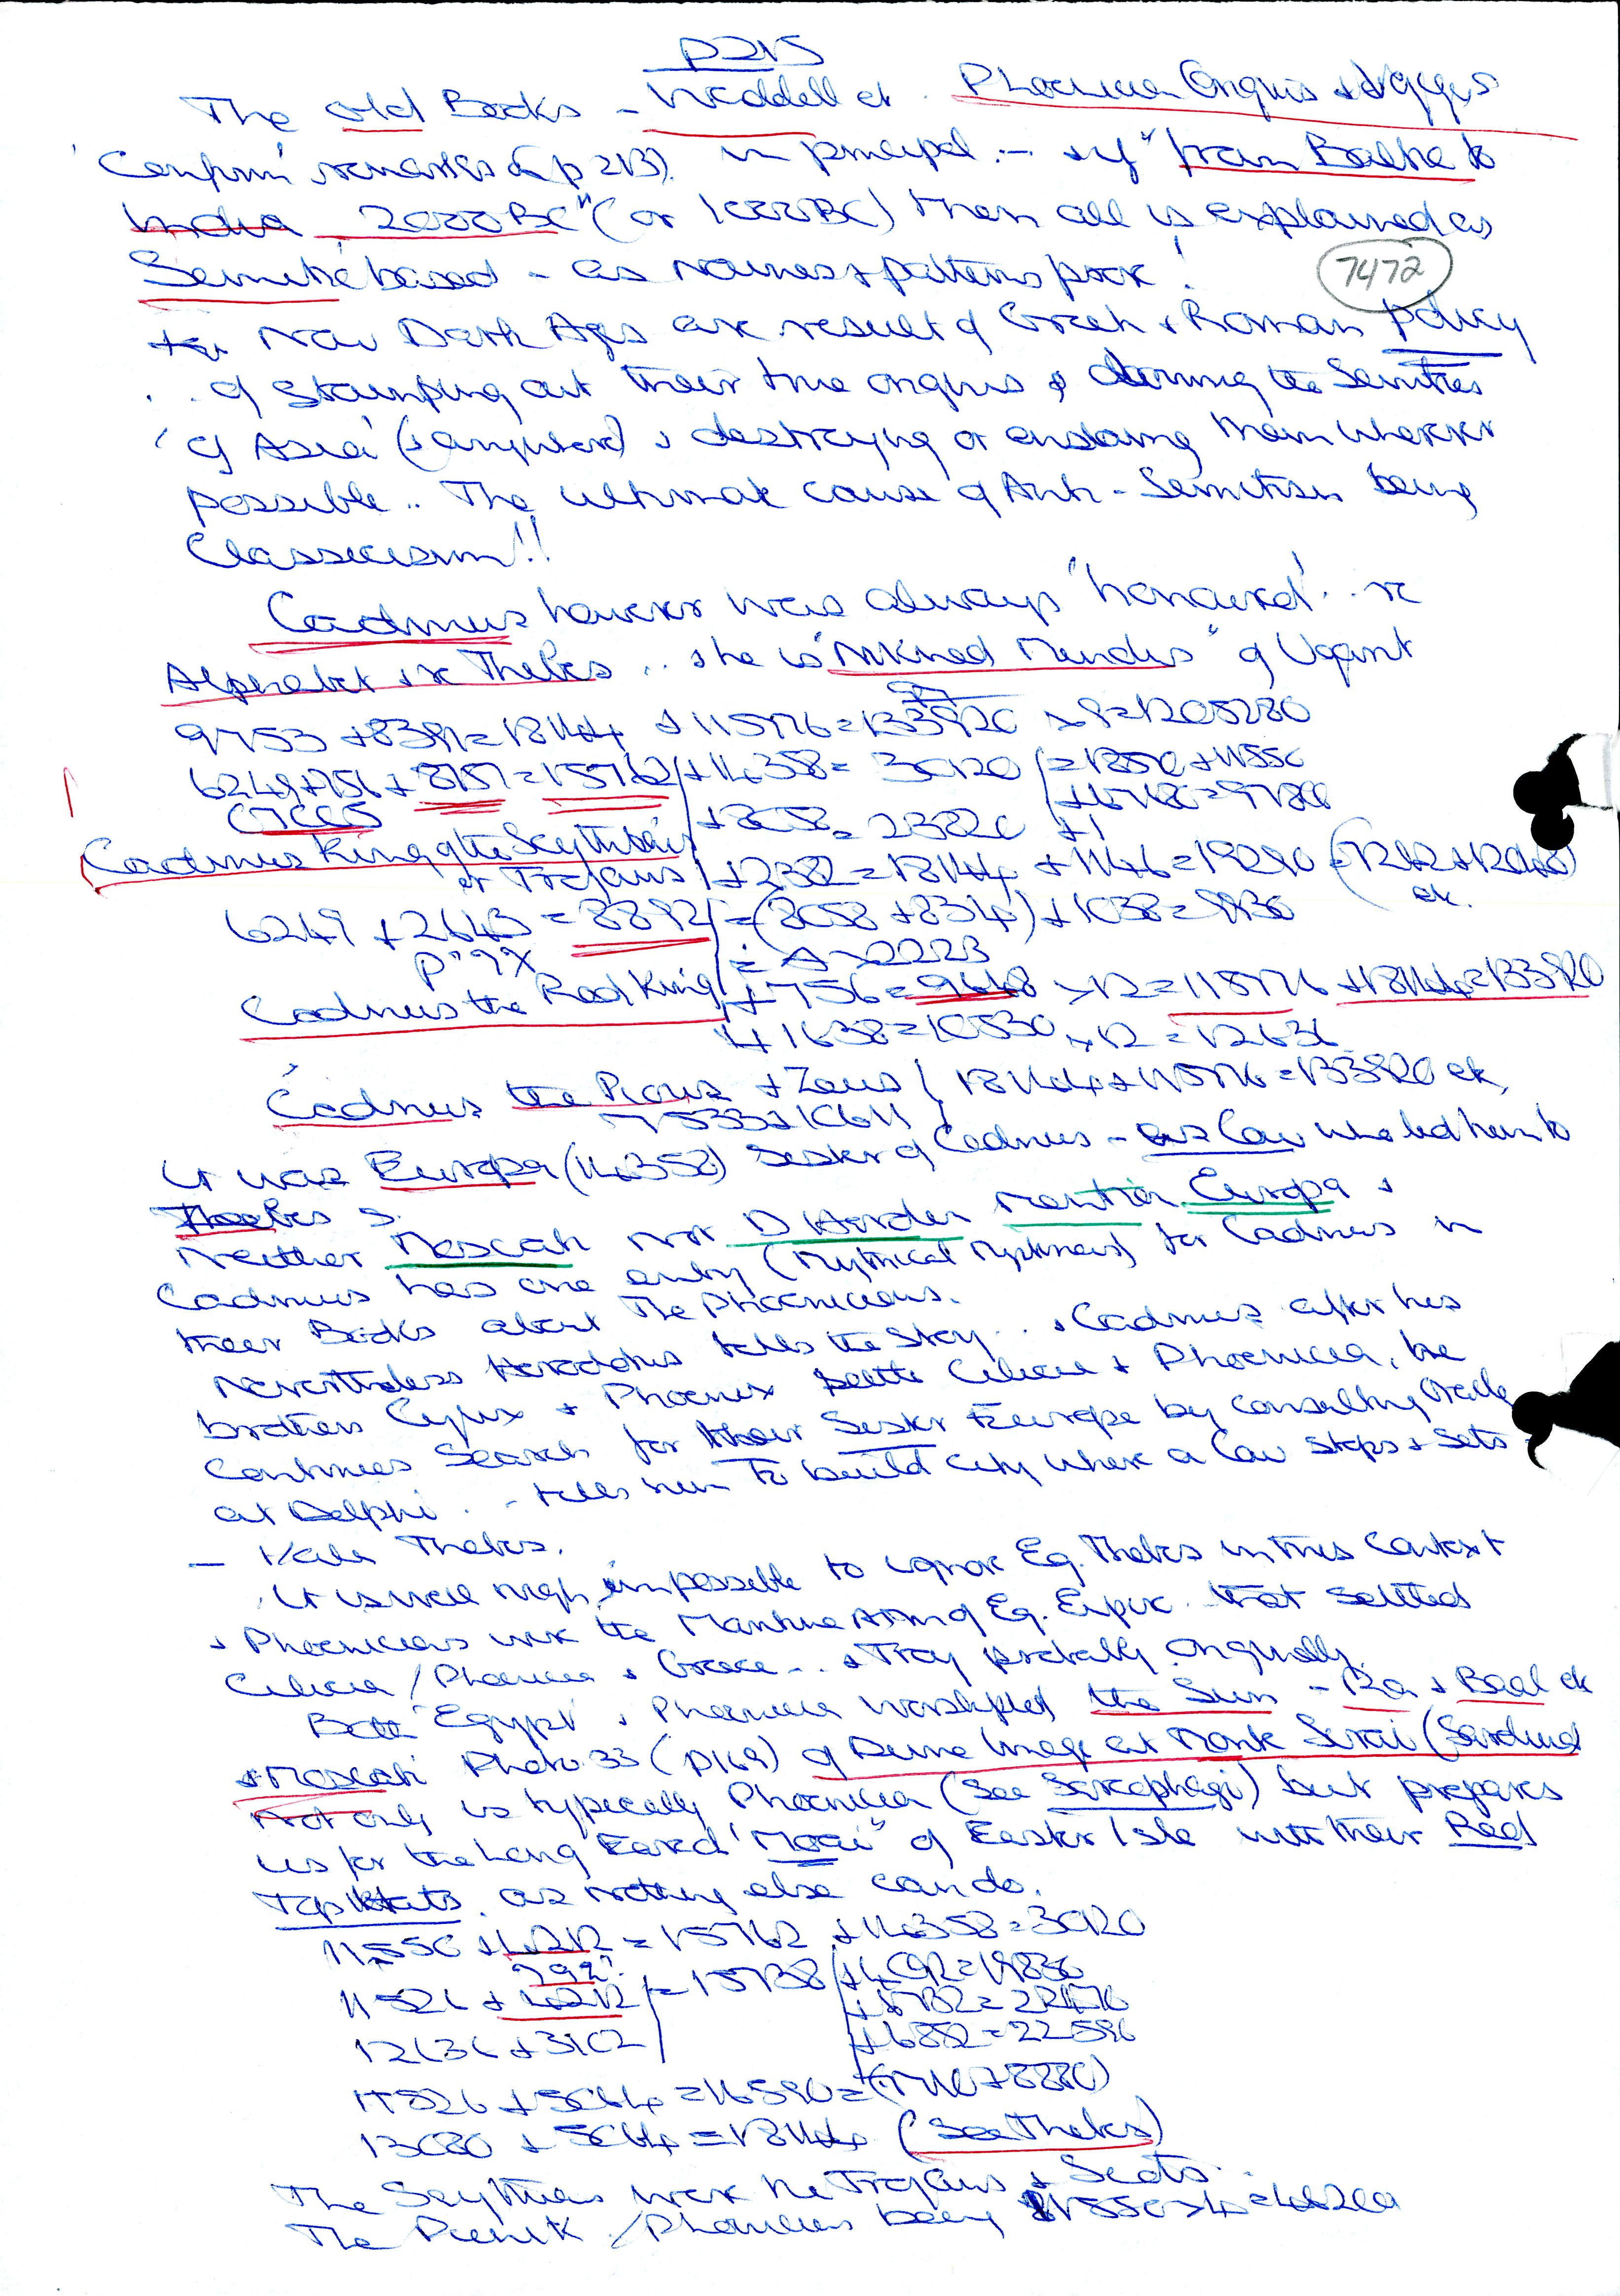 p215
The old Books - Waddell et. Phoenician Origins &
'Confirm' remarks (p 213) in principal :- & if "from Baltic to
India, 2000BC" (or 1000BC) then all is explained as
Semitic based - as names & patterns prove!
7472
Now Dark Ages are result of Greek & Roman policy
of stamping out their true origins & the Semites
of Asia' ( ) & destroying or enslaving them wherever
possible.. The ultimate cause of Anti-Semitism being
Classicism!!
Cadmus however was always 'honoured'.. re
Alphabet & re Thebes .. & he is " " of Ugarit
9753 + 8391 = 18144 + 115776 = 133920 × 9 = 1205280
6249 + 756 + 8757 = 15762 + 14358 = 30120
7005
Cadmus King of the Scythians
or Trojans + 2382 = 18144 + 1146 = 19290
etc.
6249 + 2643 = 8892 = (8058 + 834) + 1038 = 9930
= 4 × 2223
Cadmus the Red King + 756 = 9648 × 12 = 115776 + 18144 = 133920
+ 1638 = 10530 × 12 =
Cadmus the Pious & Zeus 18144 + 115776 = 133920 etc,
7533 + 10611
It was Europa (14358) sister of Cadmus - as Cow who led him to
Thebes &
Neither Moscati nor D Harden mention Europa &
Cadmus has one entry (Mythical ) for Cadmus in
their Books about The Phoenicians.
Nevertheless Herodotus tells the story... & Cadmus after his
brothers Cylix & Phoenix settle Cilicia & Phoenicia, he
continues search for their sister Europa by consulting Oracle
at Delphi .. - tells him to build city where a Cow stops & sets -
- Thebes.
It is well nigh impossible to ignore Eg. Thebes in this Context
& Phoenicians were the Maritime Arm of Eg. Empire that settled
Cilicia / Phoenicia & Greece... & Troy probably originally.
Both Egypt & Phoenicia worshipped the Sun - Ra & Baal etc
& Moscati Photo. 33 (p169) of Divine Image at Monte Sirai (Sardinia)
Not only is typically Phoenicia (see Sarcophagi) but prepares
us for the Long Eared "Moai" of Easter Isle with their Red
Top Hats, as nothing else can do.
11550 + 4212 = 15762 + 14358 = 30120
11526 + 4212 = 15738 + 4092 = 19830
12636 + 3102 + 6852 = 22590
11526 + 5064 = 16590 = (7710 + 8880)
13080 + 5064 = 18144 (See Thebes)
The Scythians were the Trojans & Scots.
The Punic / Phoenicians being 11550 × 4 = 46200